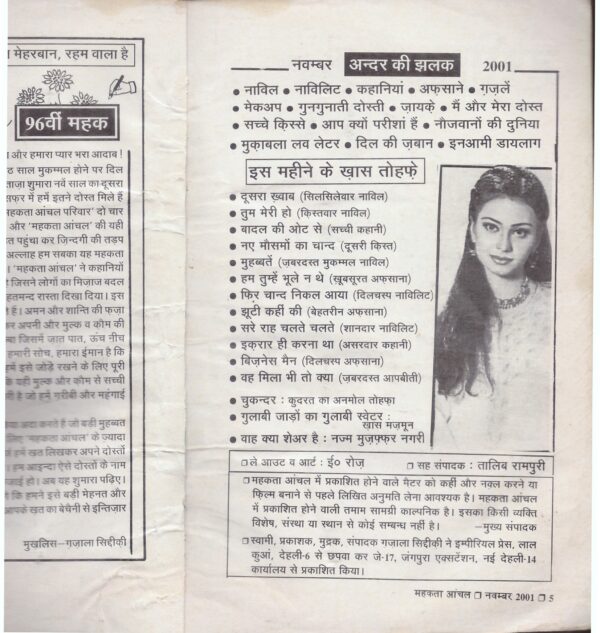 मेहरबान, रहम वाला है
96वीं महक
और हमारा प्यार भरा आदाब !
साल मुकम्मल होने पर दिल
ताज़ा शुमारा नवें साल का दूसरा
सफ़र में हमें इतने दोस्त मिले हैं
महकता आंचल परिवार' दो चार
और 'महकता आंचल' की यही
पहुंचा कर ज़िन्दगी की तड़प
अल्लाह हम सबका यह महकता
'महकता आंचल' ने कहानियों
जिसने लोगों का मिजाज बदल
सेहतमन्द रास्ता दिखा दिया। इस
हैं। अमन और शान्ति की फ़ज़ा
कर अपनी और मुल्क व कौम की
जिसमें जात पात, ऊंच नीच
हमारी सोच, हमारा ईमान है कि
हमें इसे जोड़े रखने के लिए पूरी
कि यही मुल्क और कौम से सच्ची
है जो हमें गरीबी और महंगाई
अदा करते हैं जो बड़ी मुहब्बत
लिए 'महकता आंचल' के ज़्यादा
हमें खत लिखकर अपने दोस्तों
हम आइन्दा ऐसे दोस्तों के नाम
जाई हो। अब यह शुमारा पढ़िए।
कि हमने इसे बड़ी मेहनत और
आपके खत का बेचैनी से इन्तिज़ार
मुखलिस–गजाला सिद्दीकी
नवम्बर अन्दर की झलक 2001
● नाविल ● नाविलिट ● कहानियां ● अफ़साने ● ग़ज़लें
● मेकअप ● गुनगुनाती दोस्ती ● ज़ायक़े ● मैं और मेरा दोस्त
● सच्चे क़िस्से ● आप क्यों परीशां हैं ● नौजवानों की दुनिया
● मुक़ाबला लव लेटर ● दिल की ज़बान ● इनआमी डायलाग
इस महीने के ख़ास तोहफ़े
● दूसरा ख़्वाब (सिलसिलेवार नाविल)
● तुम मेरी हो (क़िस्तवार नाविल)
● बादल की ओट से (सच्ची कहानी)
● नए मौसमों का चान्द (दूसरी क़िस्त)
● मुहब्बतें (ज़बरदस्त मुकम्मल नाविल)
● हम तुम्हें भूले न थे (ख़ूबसूरत अफ़साना)
● फिर चान्द निकल आया (दिलचस्प नाविलिट)
● झूटी कहीं की (बेहतरीन अफ़साना)
● सरे राह चलते चलते (शानदार नाविलिट)
● इक़रार ही करना था (असरदार कहानी)
● बिज़नेस मैन (दिलचस्प अफ़साना)
● वह मिला भी तो क्या (ज़बरदस्त आपबीती)
● चुकन्दर : कुदरत का अनमोल तोहफ़ा
● गुलाबी जाड़ों का गुलाबी स्वेटर :
ख़ास मज़मून
● वाह क्या शेअर है : नज्म मुज़फ़्फ़र नगरी
❑ ले आउट व आर्ट : ई० रोज़ ❑ सह संपादक : तालिब रामपुरी
❑ महकता आंचल में प्रकाशित होने वाले मैटर को कहीं और नक्ल करने या
फ़िल्म बनाने से पहले लिखित अनुमति लेना आवश्यक है। महकता आंचल
में प्रकाशित होने वाली तमाम सामग्री काल्पनिक है। इसका किसी व्यक्ति
विशेष, संस्था या स्थान से कोई सम्बन्ध नहीं है। –मुख्य संपादक
❑ स्वामी, प्रकाशक, मुद्रक, संपादक गजाला सिद्दीकी ने इम्पीरियल प्रेस, लाल
कुआं, देहली-6 से छपवा कर जे-17, जंगपुरा एक्सटेंशन, नई देहली-14
कार्यालय से प्रकाशित किया।
महकता आंचल ❑ नवम्बर 2001 ❑ 5